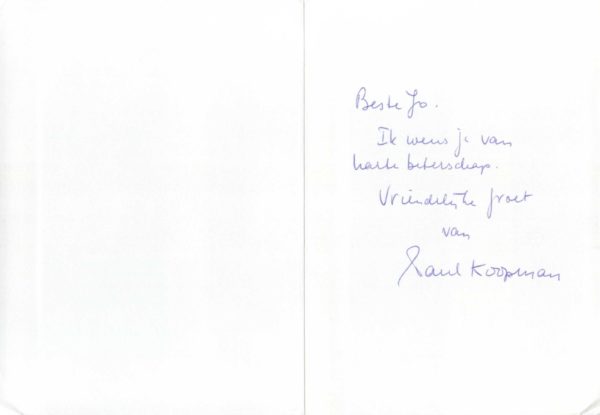 Beste Jo.
Ik wens je van
harte beterschap.
Vriendelijke groet
van
Koopman